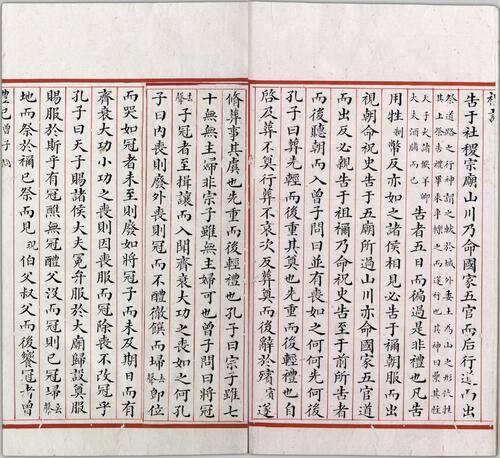 告于社稷宗廟山川乃命國家五官而后行道而出
祭道路之行神謂之軷於城外委土為山之形伏牲
其上祭告禮畢乘車轢之而遂行也其神曰纍其牲
天子犬諸侯羊卿
大夫酒脯而已
告者五日而徧過是非禮也凡告
用牲制幣反亦如之諸侯相見必告于禰朝服而出
視朝命祝史告于五廟所過山川亦命國家五官道
而出反必親告于祖禰乃命祝史告至于前所告者
而後聽朝而入曾子問曰並有喪如之何何先何後
孔子曰葬先輕而後重其奠也先重而後輕禮也自
啓及葬不奠行葬不哀次反葬奠而後辭於殯賓遂
脩葬事其虞也先重而後輕禮也孔子曰宗子雖七
十無無主婦非宗子雖無主婦可也曾子問曰將冠
去聲子冠者至揖讓而入聞齊衰大功之喪如之何孔
子曰内喪則廢外喪則冠而不醴徹饌而埽去聲即位
而哭如冠者未至則廢如將冠子而未及期日而有
齊衰大功小功之喪則因喪服而冠除喪不改冠乎
孔子曰天子賜諸侯大夫冕弁服於大廟歸設奠服
賜服於斯乎有冠醮無冠醴父沒而冠則已冠埽去聲
地而祭於禰已祭而見現伯父叔父而後饗冠者曾
禮記曾子問